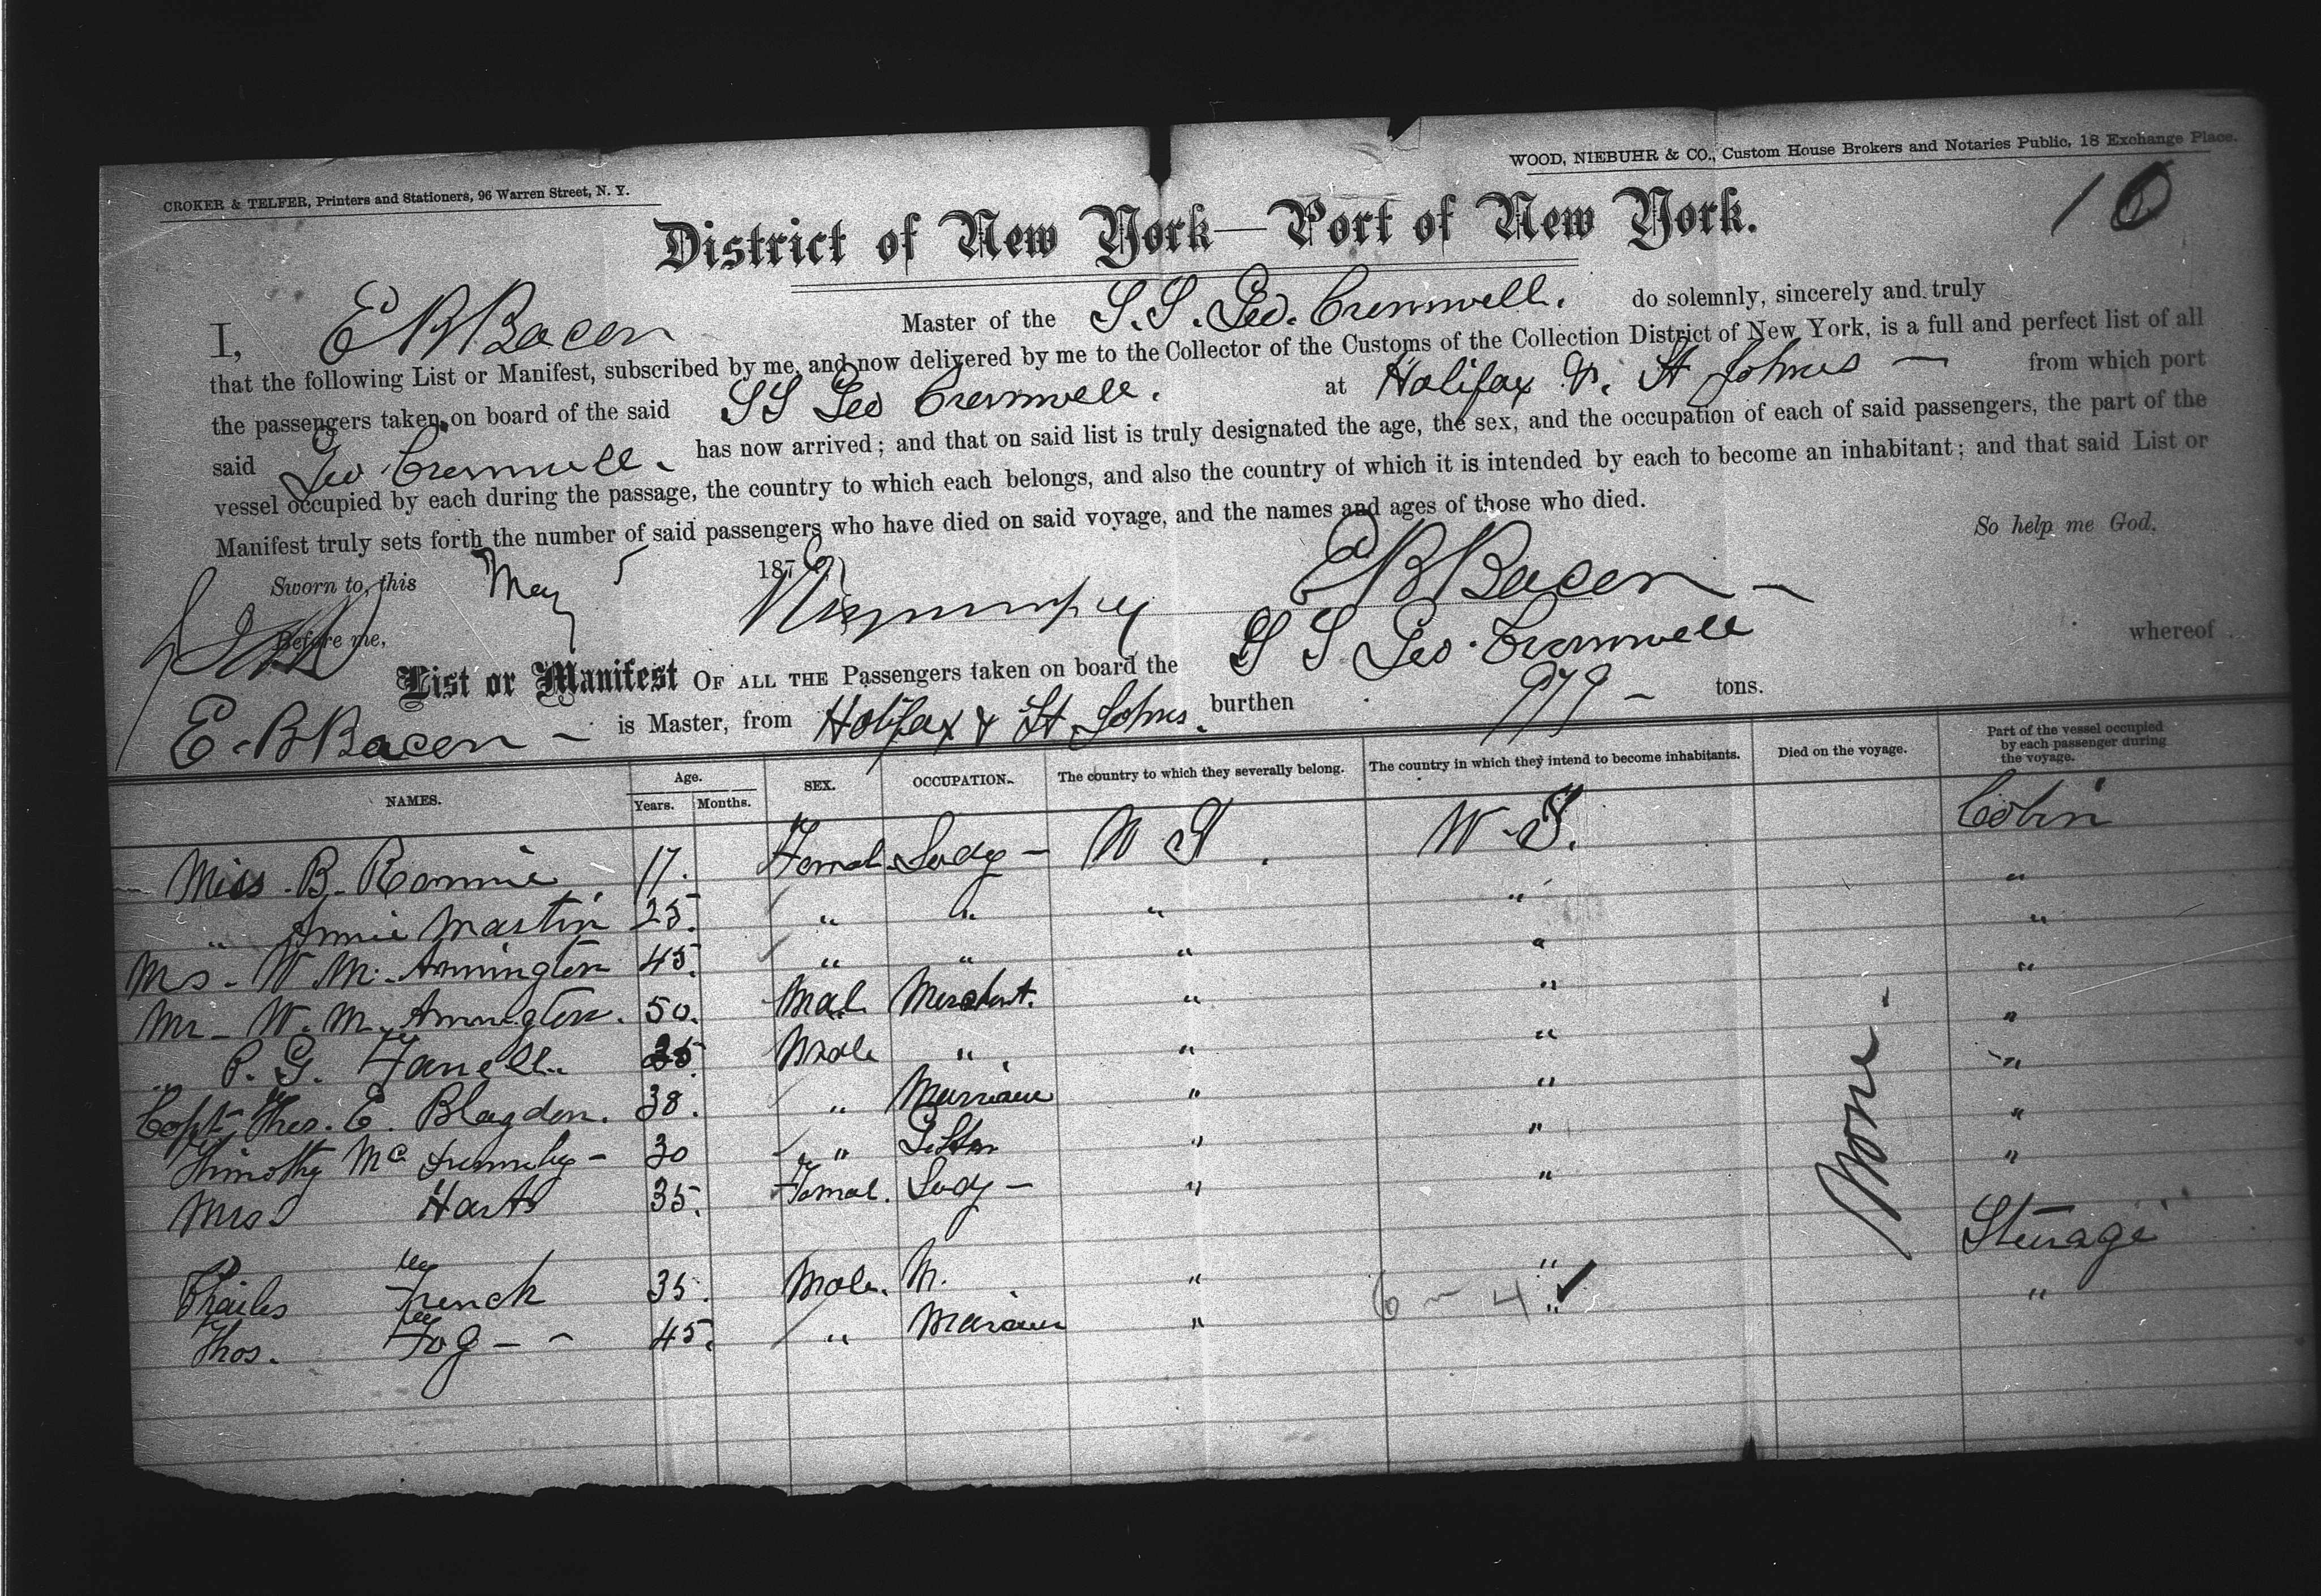 WOOD, NIEBUHR & CO., Custom House Brokers and Notaries Public, 18 Exchange Place.
CROKER & TELFER, Printers and Stationers, 96 Warren Street, N. Y.
10
District of New York—Port of New York.
I, E B Bacon Master of the S.S. Geo. Cromwell. do solemnly, sincerely and truly
that the following List or Manifest, subscribed by me, and now delivered by me to the Collector of the Customs of the Collection District of New York, is a full and perfect list of all
the passengers taken on board of the said SS Geo Cromwell. at Halifax & St Johns — from which port
said Geo Cromwell. has now arrived; and that on said list is truly designated the age, the sex, and the occupation of each of said passengers, the part of the
vessel occupied by each during the passage, the country to which each belongs, and also the country of which it is intended by each to become an inhabitant; and that said List or
Manifest truly sets forth the number of said passengers who have died on said voyage, and the names and ages of those who died.
So help me God.
Sworn to, this May 5 187
E B Bacon —
Before me,
List or Manifest OF ALL THE Passengers taken on board the S S Geo. Cromwell whereof
E. B Bacon — is Master, from Halifax & St Johns. burthen 979 — tons.
NAMES. Age. Years. Months. SEX. OCCUPATION. The country to which they severally belong. The country in which they intend to become inhabitants. Died on the voyage. Part of the vessel occupied by each passenger during the voyage.
Miss. B. Rannie 17. Femal. Lady — Cabin
" Annie Martin 25. " " " " "
Ms. W. M. Annington 45. " " " " "
Mr. W. M. Annington. 50. Mal. Merchant. " " "
" P. G. Fanell. Male " " " "
Capt. Thos. E. Blagden. 38. " " " "
Timothy Mc 30 " " " "
Mrs. Hart 35. Femal. Lady — " " "
None.
Charles French 35. Male. M. " " Steerage
Thos. Fog — 45. " Marener " " "
6 — 4 ✓